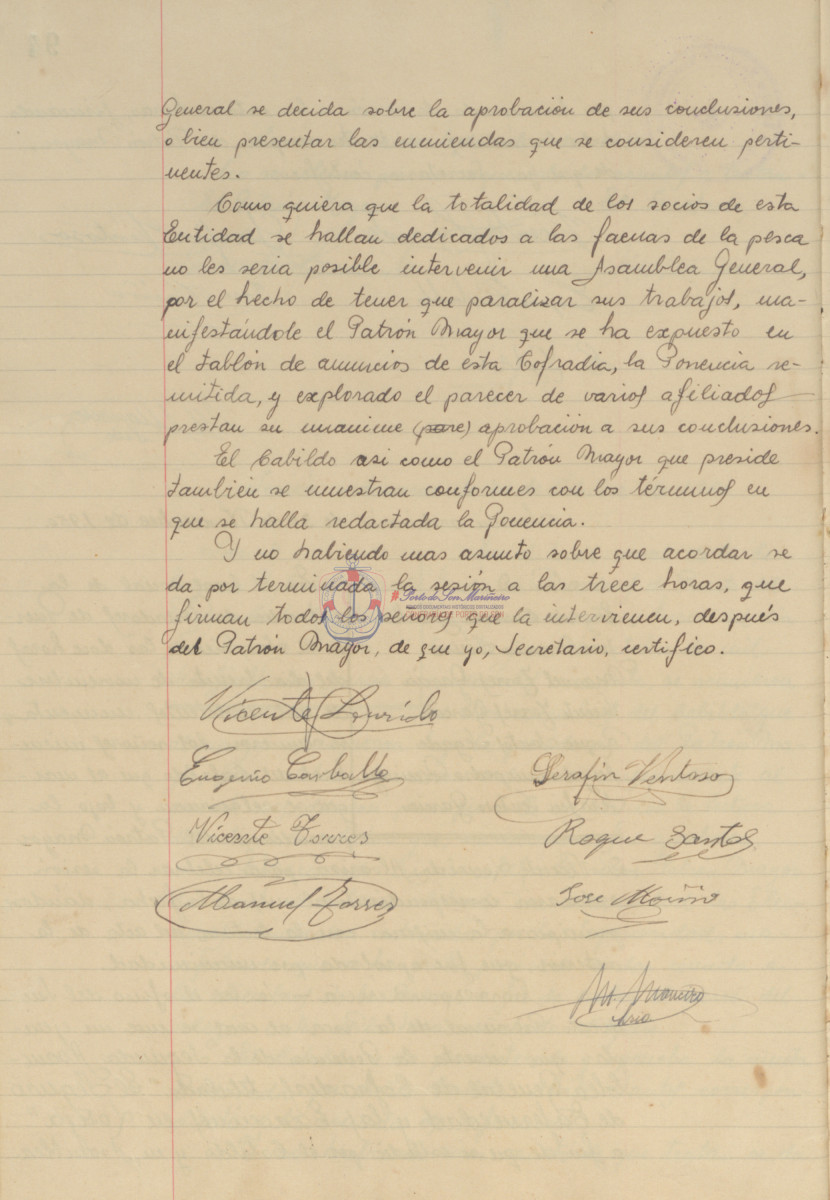 General se decida sobre la aprobación de sus conclusiones,
o bien presentar las enmiendas que se consideren perti-
nentes.
Como quiera que la totalidad de los socios de esta
Entidad se hallan dedicados a las faenas de la pesca
no les seria posible intervenir una Asamblea General,
por el hecho de tener que paralizar sus trabajos, ma-
nifestándole el Patrón Mayor que se ha expuesto en
el tablón de anuncios de esta Cofradia, la Ponencia re-
mitida, y explorado el parecer de varios afiliados
prestan su unanime (pare) aprobación a sus conclusiones.
El Cabildo asi como el Patrón Mayor que preside
tambien se muestran conformes con los términos en
que se halla redactada la Ponencia.
Y no habiendo mas asunto sobre que acordar se
da por terminada la sesión a las trece horas, que
Porto do Son Marineiro
firman todos los señores que la intervienen, después
del Patrón Mayor, de que yo, Secretario, certifico.
Vicente Lourido
Eugenio Carballo Serafin Ventoso
Vicente Torres Roque Santos
Manuel Torres Jose Moiño
M.